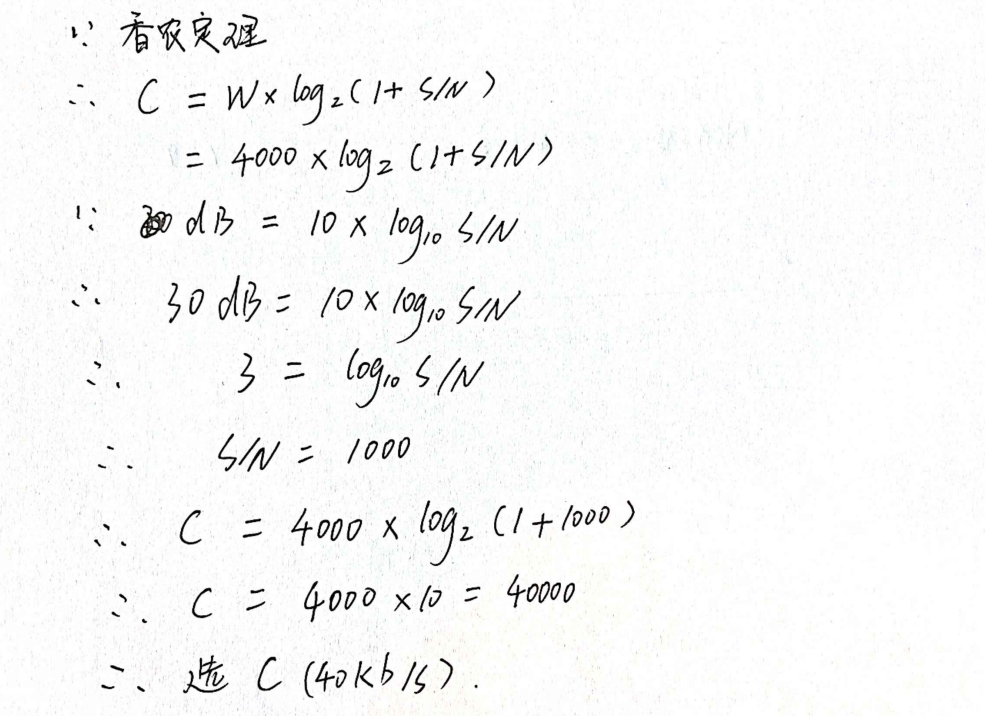 ∵ 香农定理
∴ C = W × log₂(1 + S/N)
= 4000 × log₂(1+S/N)
∵ dB = 10 × log₁₀ S/N
∴ 30 dB = 10 × log₁₀ S/N
∴ 3 = log₁₀ S/N
∴ S/N = 1000
∴ C = 4000 × log₂(1+1000)
∴ C = 4000 × 10 = 40000
∴ 选 C (40kb/s).